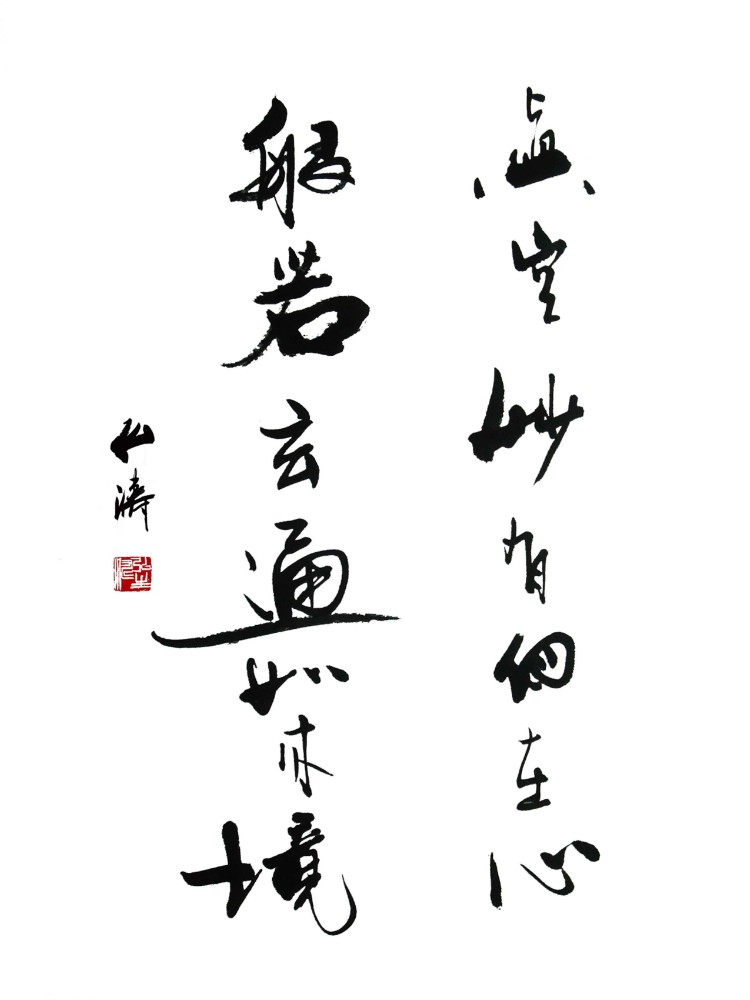 真空妙有個在心
般若玄通如來境
弘濤